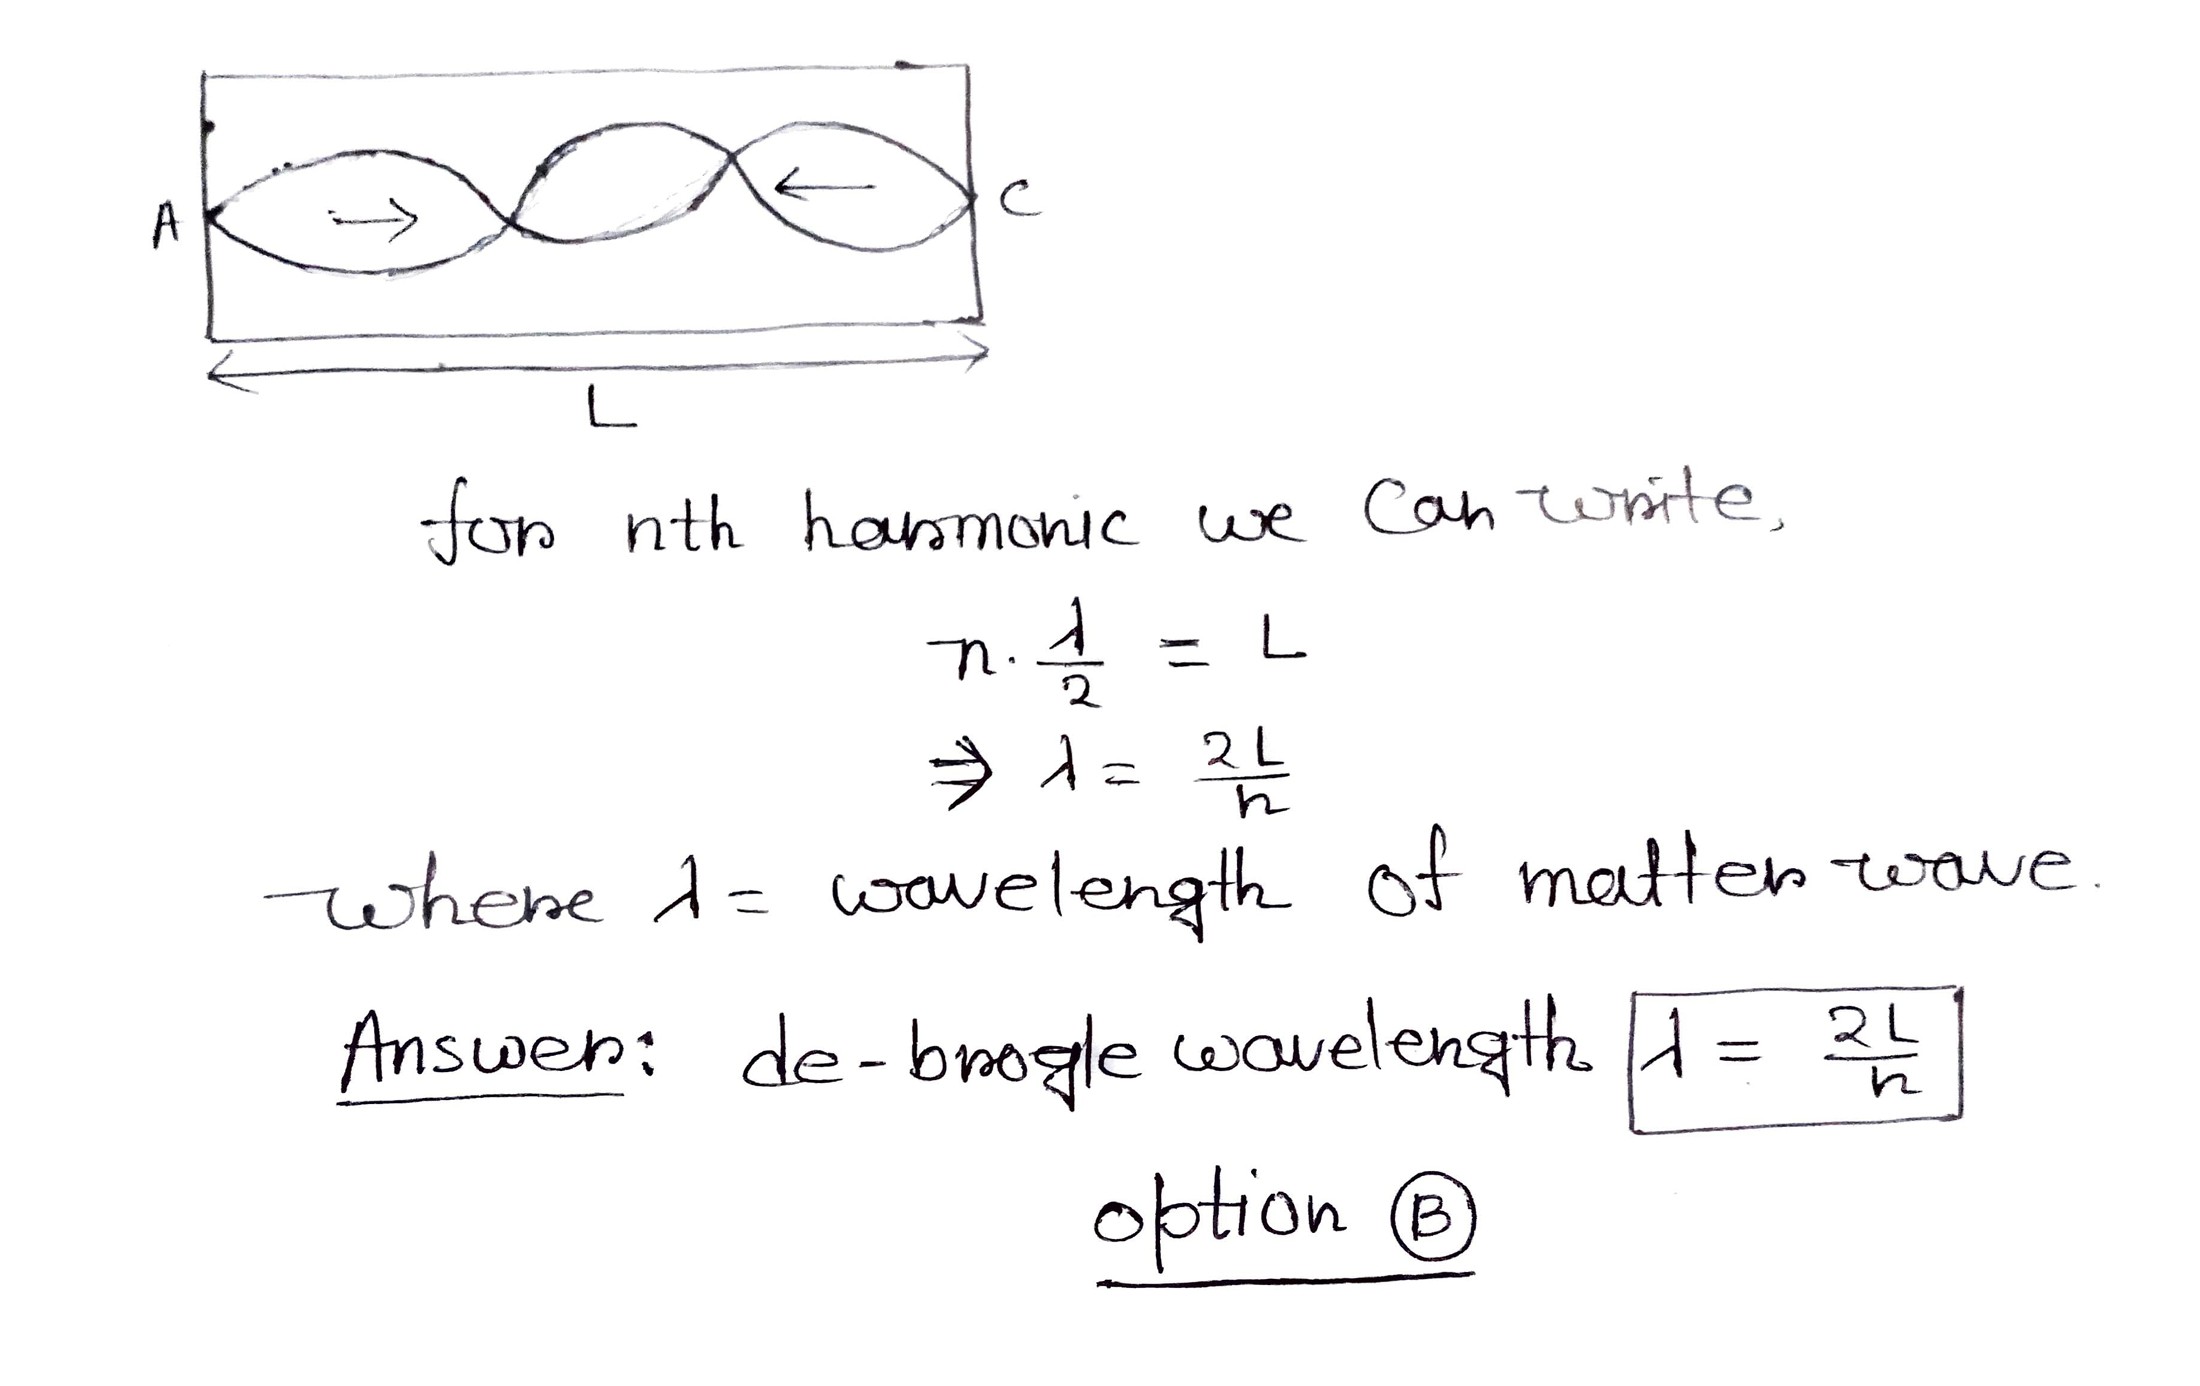 A
C
L
for nth harmonic we can write,
n. λ/2 = L
⇒ λ = 2L/n
where λ = wavelength of matter wave.
Answer: de-brogle wavelength λ = 2L/n
option B